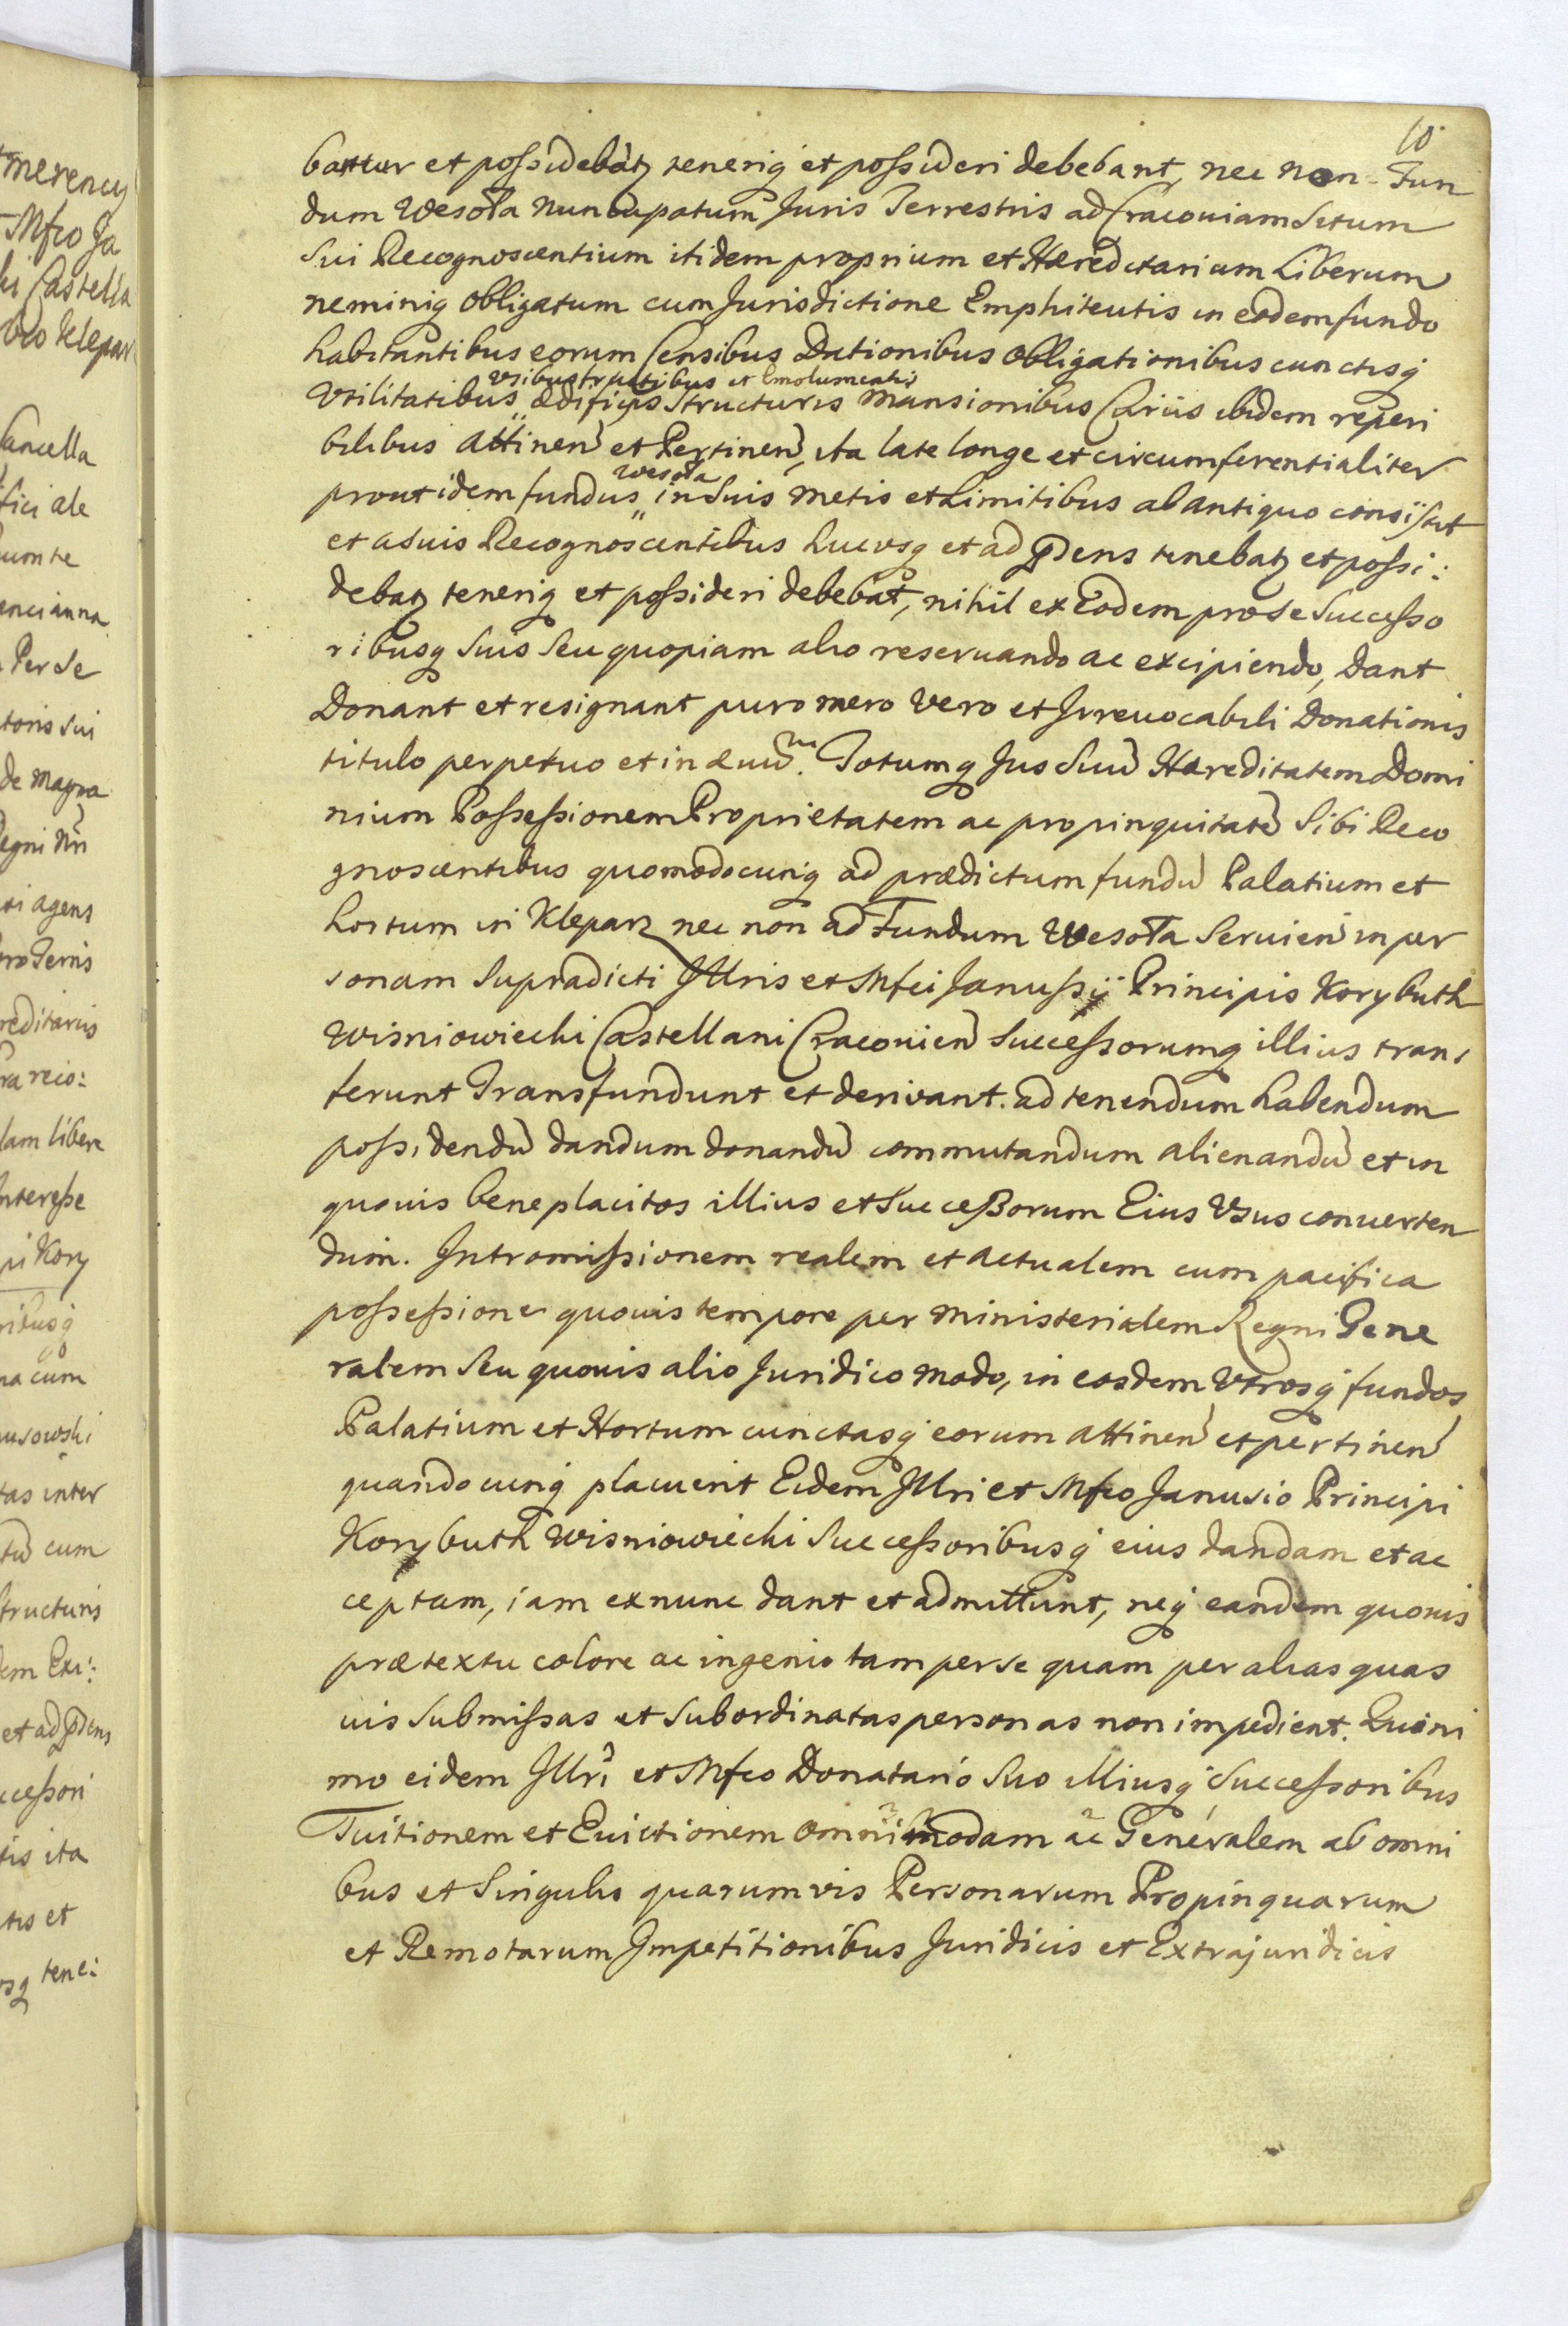 10
battur et possidebatz teneriq et possideri debebant, nec non Fun
dum Wesoła Nuncupatum Juris Terrestris ad Cracouiam Situm
Sui Recognoscentium itidem proprium et Hæreditarium Liberum
neminiq obligatum cum Jurisdictione Emphiteutis in eodem fundo
habitantibus eorum Censibus Dationibus obligationibus cunctisq
Vsibusfructibus et Emolumentis
Vtilitatibus ædificijs Structuris Mansionibus Curiis ibidem reperi
bilibus attinen̄ et Pertinen̄, ita late longe et circumferentialiter
Wesoła
prout idem fundus in Suis Metis et Limitibus ab antiquo consistit
et a suis Recognoscentibus hucusq et ad p̄dens tenebatz et possi:
debatz teneriq et possideri debebat, nihil ex Eodem pro se Successo
ribusq suis seu quopiam alio reseruando ac excipiendo, Dant
Donant et resignant puro mero Vero et Irreuocabili Donationis
titulo perpetuo et in æuum. Totumq Jus Suū Hæreditatem Domi
nium Possessionem Proprietatem ac propinquitatē Sibi Reco
gnoscentibus quomodocunq ad prædictum fundū Palatium et
hortum in Kleparz nec non ad Fundum Wesoła Seruien̄ in per
sonam Supradicti Illris et Mfci Janussij Principis Korybuth
Wisniowiechi Castellani Cracouien̄ Successorumq illius trans
ferunt Transfundunt et derivant. ad tenendum habendum
possidendū dandum donandū commutandum alienandū et in
quouis beneplacitos illius et Successorum Eius Vsus conuerten
dum. Intromissionem realem et actualem cum pacifica
possessione quouis tempore per Ministerialem Regni Gene
ralem Seu quouis alio Juridico modo, in eosdem Vtrosq fundos
Palatium et Hortum cunctasq eorum attinen̄ et pertinen̄
quandocunq placuerit Eidem Illri et Mfco Janusio Principi
Korybuth Wisniowiechi Successoribusq eius dandam et ac
ceptam, iam ex nunc dant et admittunt, neq eandem quouis
prætextu colore ac ingenio tam per se quam per alias quas
uis Submissas et Subordinatas personas non impedient. Quini
mo eidem Illri et Mfco Donatario Suo illiusq Successoribus
Tuitionem et Euictionem omnimodam ac Generalem ab omni
bus et Singulis quarumvis Personarum Propinquarum
et Remotarum Impetitionibus Juridicis et Extrajuridicis